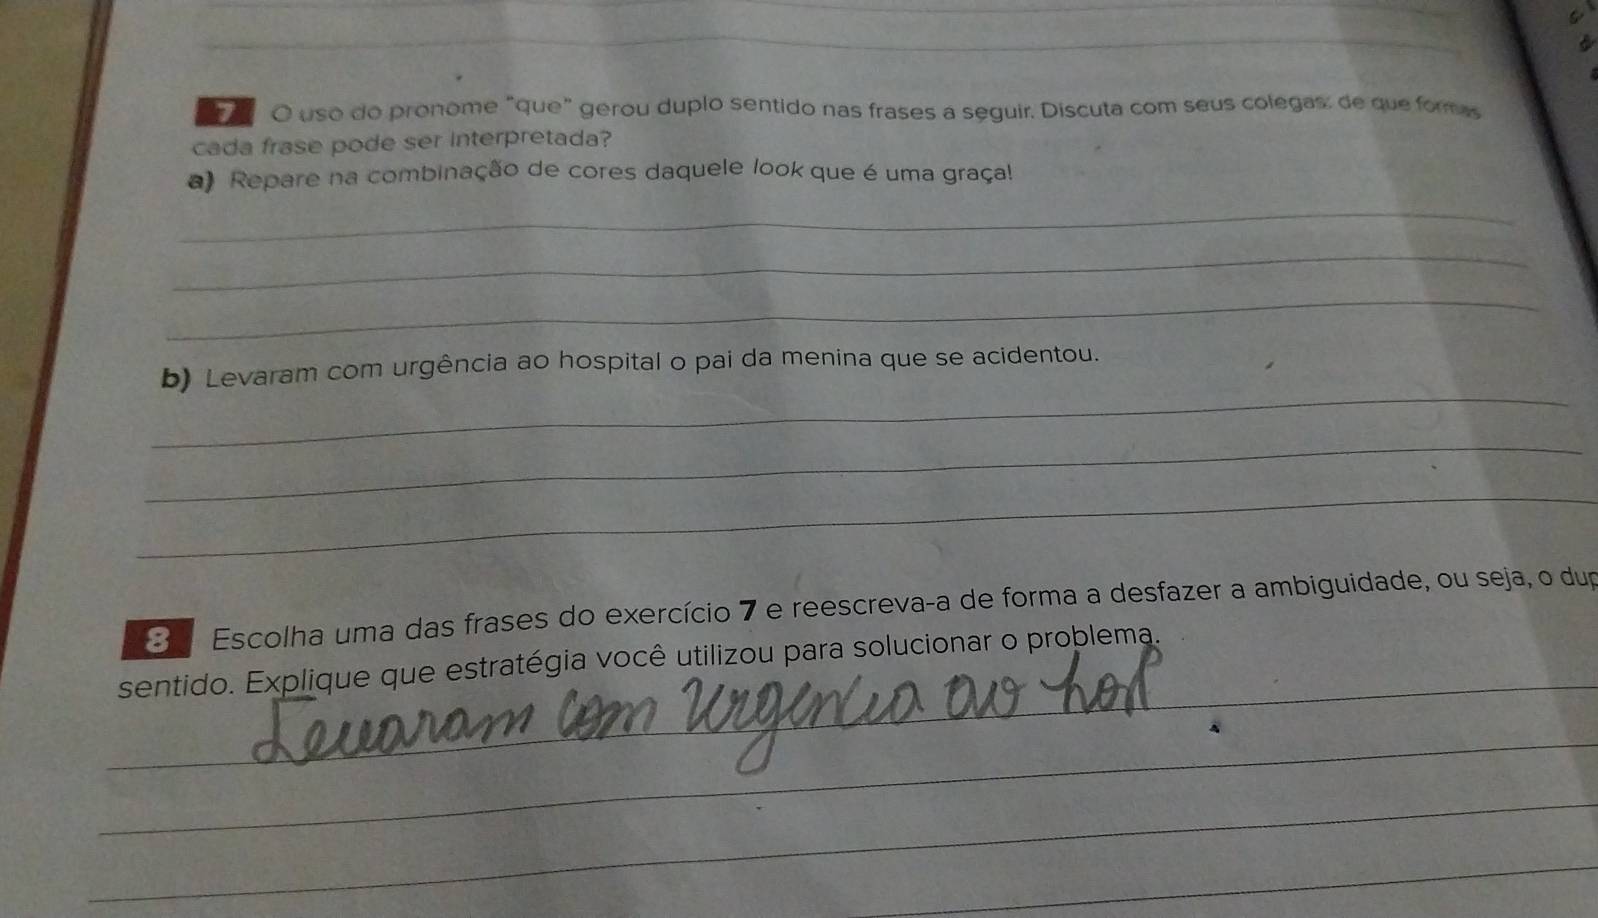 7 O uso do pronome "que" gerou duplo sentido nas frases a seguir. Discuta com seus colegas: de que formas
cada frase pode ser interpretada?
a) Repare na combinação de cores daquele look que é uma graça!
b) Levaram com urgência ao hospital o pai da menina que se acidentou.
8 Escolha uma das frases do exercício 7 e reescreva-a de forma a desfazer a ambiguidade, ou seja, o dup
sentido. Explique que estratégia você utilizou para solucionar o problema.
Levaram com urgencia ao hosp